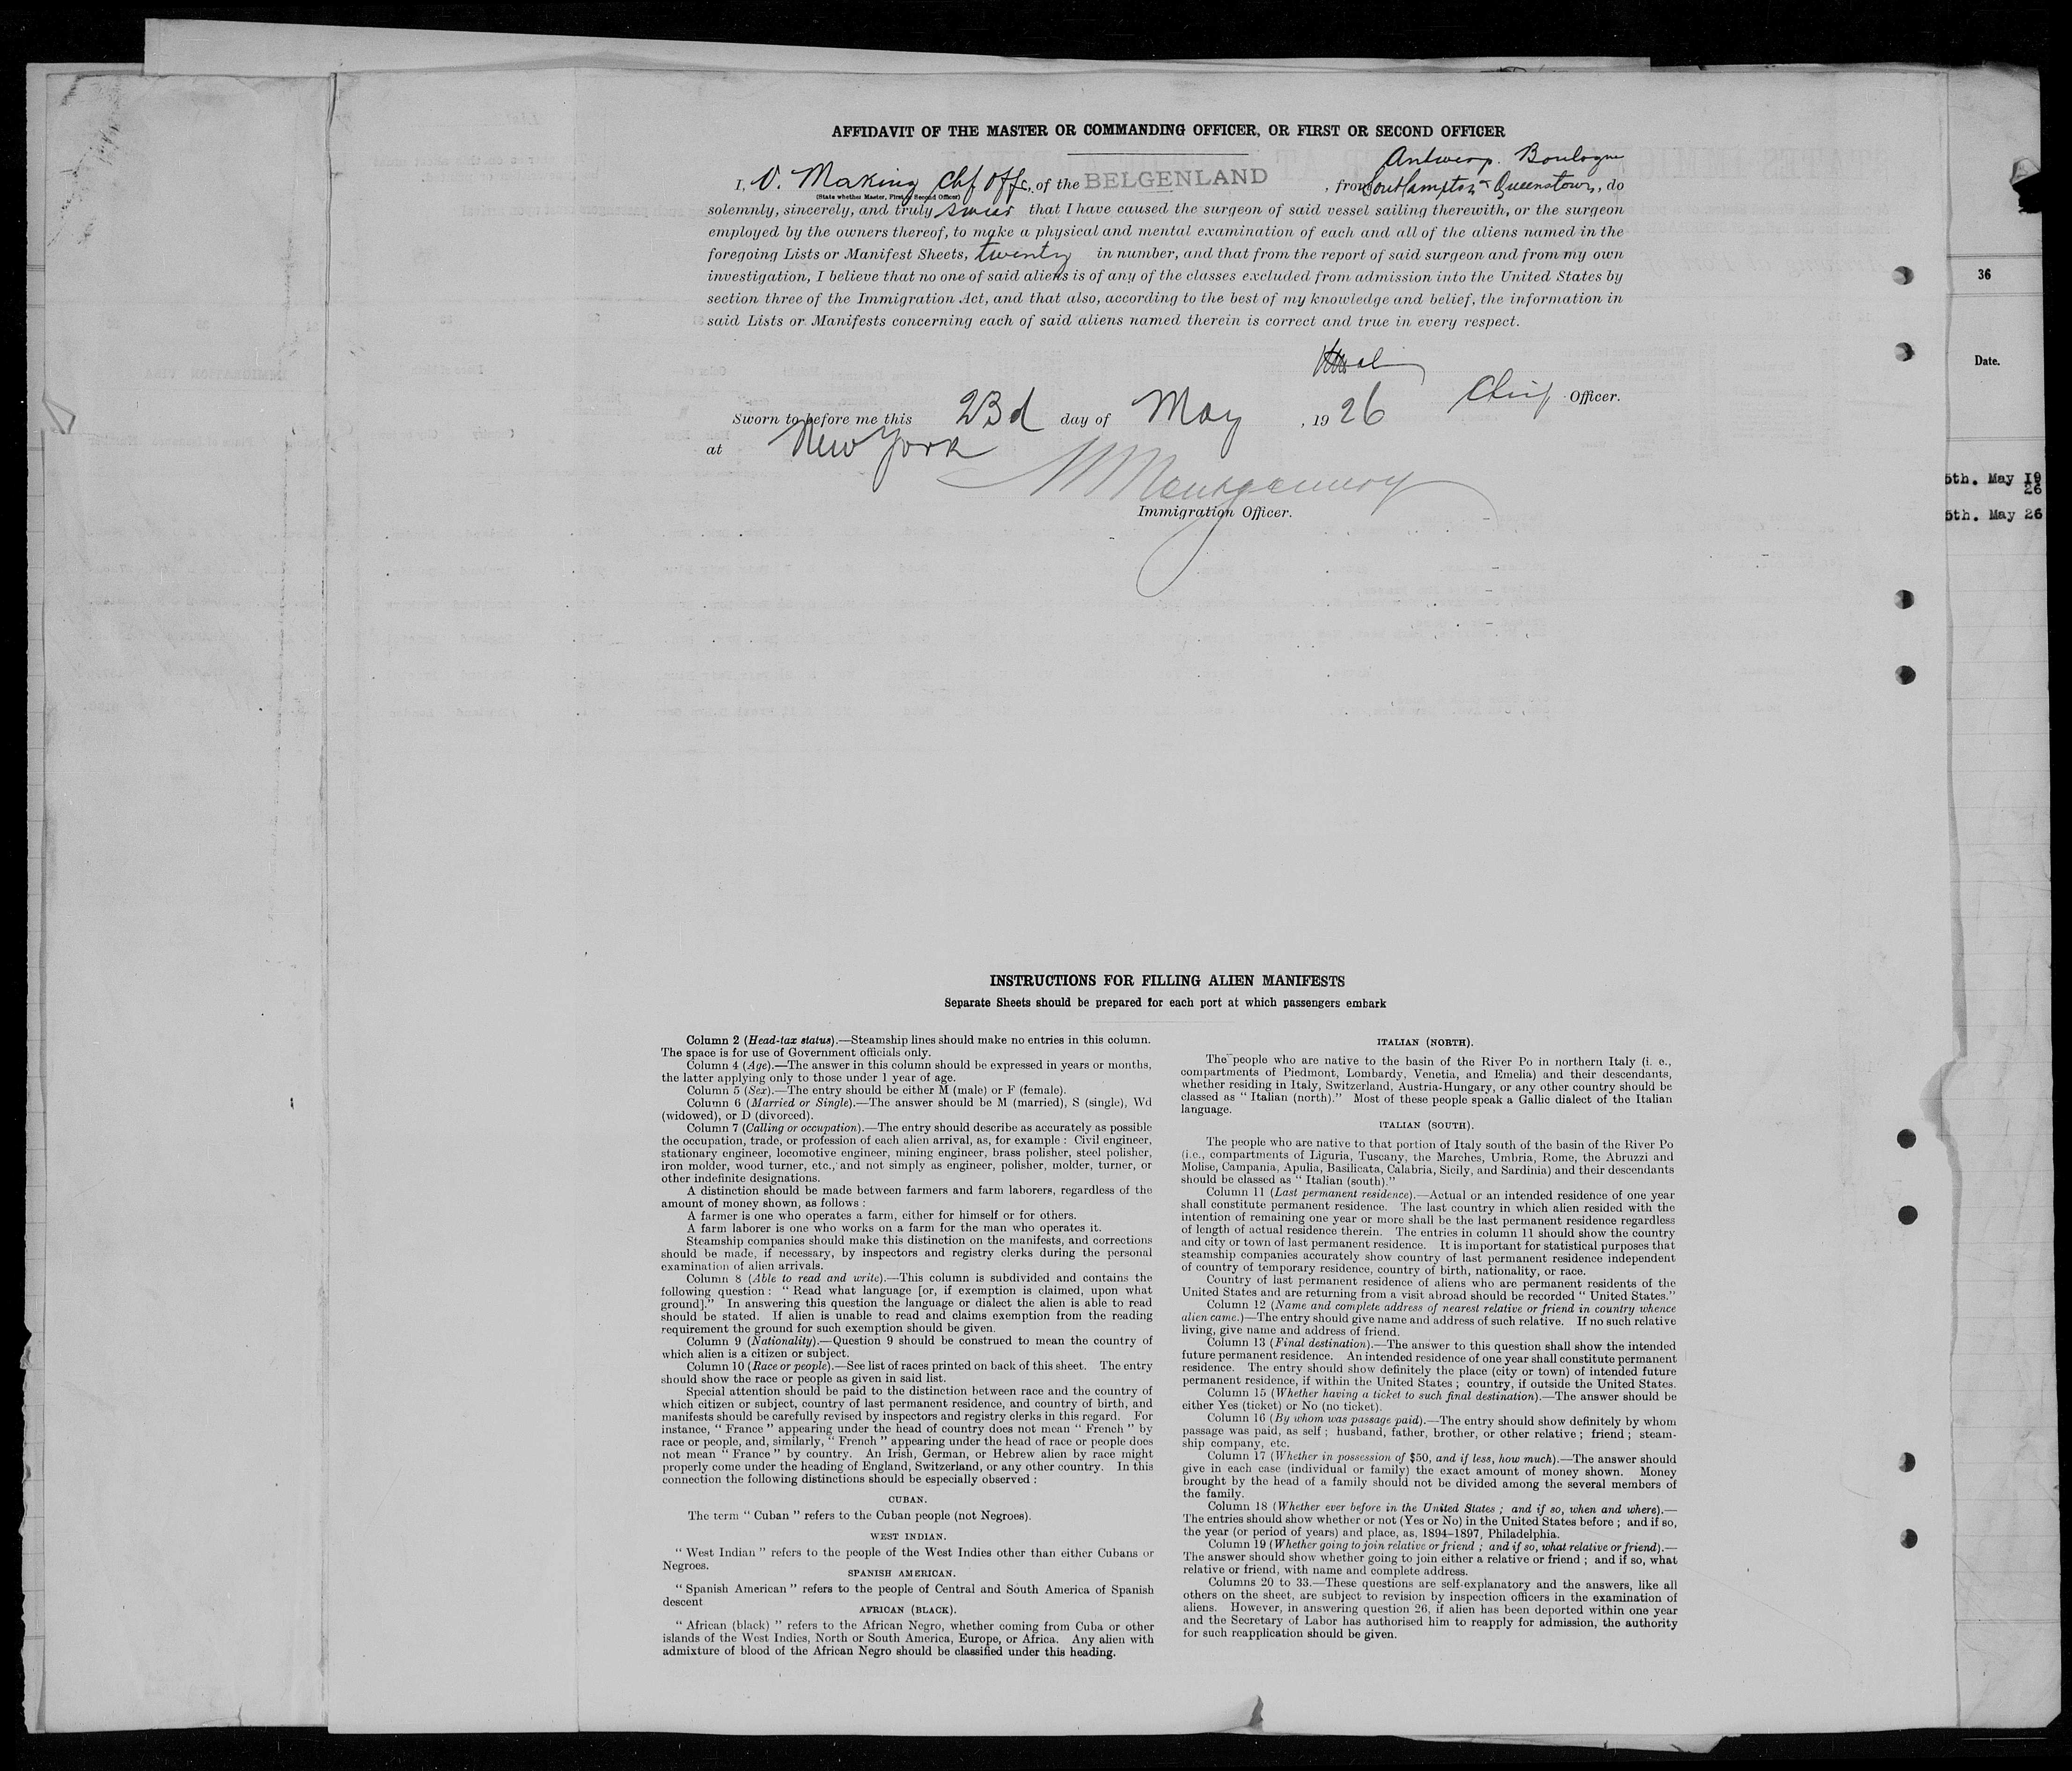 AFFIDAVIT OF THE MASTER OR COMMANDING OFFICER, OR FIRST OR SECOND OFFICER
Antwerp. Boulogne
I, V. Making Chf Offr, of the BELGENLAND, from Southampton & Queenstown, do
(State whether Master, First or Second Officer)
solemnly, sincerely, and truly swear that I have caused the surgeon of said vessel sailing therewith, or the surgeon
employed by the owners thereof, to make a physical and mental examination of each and all of the aliens named in the
foregoing Lists or Manifest Sheets, twenty in number, and that from the report of said surgeon and from my own
investigation, I believe that no one of said aliens is of any of the classes excluded from admission into the United States by
section three of the Immigration Act, and that also, according to the best of my knowledge and belief, the information in
said Lists or Manifests concerning each of said aliens named therein is correct and true in every respect.
Chief Officer.
Sworn to before me this 23d day of May, 1926
at New York
Montgomery
Immigration Officer.
36
Date.
5th. May 19
26
5th. May 26
INSTRUCTIONS FOR FILLING ALIEN MANIFESTS
Separate Sheets should be prepared for each port at which passengers embark
Column 2 (Head-tax status).—Steamship lines should make no entries in this column.
The space is for use of Government officials only.
Column 4 (Age).—The answer in this column should be expressed in years or months,
the latter applying only to those under 1 year of age.
Column 5 (Sex).—The entry should be either M (male) or F (female).
Column 6 (Married or Single).—The answer should be M (married), S (single), Wd
(widowed), or D (divorced).
Column 7 (Calling or occupation).—The entry should describe as accurately as possible
the occupation, trade, or profession of each alien arrival, as, for example : Civil engineer,
stationary engineer, locomotive engineer, mining engineer, brass polisher, steel polisher,
iron molder, wood turner, etc., and not simply as engineer, polisher, molder, turner, or
other indefinite designations.
A distinction should be made between farmers and farm laborers, regardless of the
amount of money shown, as follows :
A farmer is one who operates a farm, either for himself or for others.
A farm laborer is one who works on a farm for the man who operates it.
Steamship companies should make this distinction on the manifests, and corrections
should be made, if necessary, by inspectors and registry clerks during the personal
examination of alien arrivals.
Column 8 (Able to read and write).—This column is subdivided and contains the
following question : " Read what language [or, if exemption is claimed, upon what
ground]." In answering this question the language or dialect the alien is able to read
should be stated. If alien is unable to read and claims exemption from the reading
requirement the ground for such exemption should be given.
Column 9 (Nationality).—Question 9 should be construed to mean the country of
which alien is a citizen or subject.
Column 10 (Race or people).—See list of races printed on back of this sheet. The entry
should show the race or people as given in said list.
Special attention should be paid to the distinction between race and the country of
which citizen or subject, country of last permanent residence, and country of birth, and
manifests should be carefully revised by inspectors and registry clerks in this regard. For
instance, " France " appearing under the head of country does not mean " French " by
race or people, and, similarly, " French " appearing under the head of race or people does
not mean " France " by country. An Irish, German, or Hebrew alien by race might
properly come under the heading of England, Switzerland, or any other country. In this
connection the following distinctions should be especially observed :
CUBAN.
The term " Cuban " refers to the Cuban people (not Negroes).
WEST INDIAN.
" West Indian " refers to the people of the West Indies other than either Cubans or
Negroes.
SPANISH AMERICAN.
" Spanish American " refers to the people of Central and South America of Spanish
descent
AFRICAN (BLACK).
" African (black) " refers to the African Negro, whether coming from Cuba or other
islands of the West Indies, North or South America, Europe, or Africa. Any alien with
admixture of blood of the African Negro should be classified under this heading.
ITALIAN (NORTH).
The people who are native to the basin of the River Po in northern Italy (i. e.,
compartments of Piedmont, Lombardy, Venetia, and Emelia) and their descendants,
whether residing in Italy, Switzerland, Austria-Hungary, or any other country should be
classed as " Italian (north)." Most of these people speak a Gallic dialect of the Italian
language.
ITALIAN (SOUTH).
The people who are native to that portion of Italy south of the basin of the River Po
(i.e., compartments of Liguria, Tuscany, the Marches, Umbria, Rome, the Abruzzi and
Molise, Campania, Apulia, Basilicata, Calabria, Sicily, and Sardinia) and their descendants
should be classed as " Italian (south)."
Column 11 (Last permanent residence).—Actual or an intended residence of one year
shall constitute permanent residence. The last country in which alien resided with the
intention of remaining one year or more shall be the last permanent residence regardless
of length of actual residence therein. The entries in column 11 should show the country
and city or town of last permanent residence. It is important for statistical purposes that
steamship companies accurately show country of last permanent residence independent
of country of temporary residence, country of birth, nationality, or race.
Country of last permanent residence of aliens who are permanent residents of the
United States and are returning from a visit abroad should be recorded " United States."
Column 12 (Name and complete address of nearest relative or friend in country whence
alien came.)—The entry should give name and address of such relative. If no such relative
living, give name and address of friend.
Column 13 (Final destination).—The answer to this question shall show the intended
future permanent residence. An intended residence of one year shall constitute permanent
residence. The entry should show definitely the place (city or town) of intended future
permanent residence, if within the United States ; country, if outside the United States.
Column 15 (Whether having a ticket to such final destination).—The answer should be
either Yes (ticket) or No (no ticket).
Column 16 (By whom was passage paid).—The entry should show definitely by whom
passage was paid, as self ; husband, father, brother, or other relative ; friend ; steam-
ship company, etc.
Column 17 (Whether in possession of $50, and if less, how much).—The answer should
give in each case (individual or family) the exact amount of money shown. Money
brought by the head of a family should not be divided among the several members of
the family.
Column 18 (Whether ever before in the United States ; and if so, when and where).—
The entries should show whether or not (Yes or No) in the United States before ; and if so,
the year (or period of years) and place, as, 1894–1897, Philadelphia.
Column 19 (Whether going to join relative or friend ; and if so, what relative or friend).—
The answer should show whether going to join either a relative or friend ; and if so, what
relative or friend, with name and complete address.
Columns 20 to 33.—These questions are self-explanatory and the answers, like all
others on the sheet, are subject to revision by inspection officers in the examination of
aliens. However, in answering question 26, if alien has been deported within one year
and the Secretary of Labor has authorised him to reapply for admission, the authority
for such reapplication should be given.